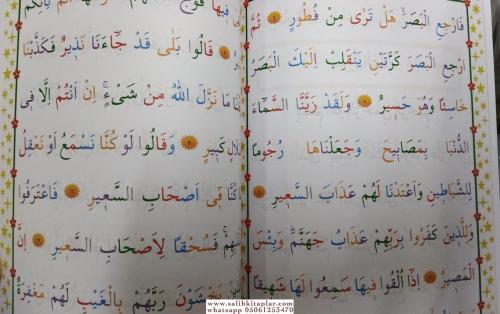 فَارْجِعِ الْبَصَرَۙ هَلْ تَرٰى مِنْ فُطُورٍ ثُمَّ
ارْجِعِ الْبَصَرَ كَرَّتَيْنِ يَنْقَلِبْ اِلَيْكَ الْبَصَرُ
خَاسِئًا وَهُوَ حَسِيرٌ وَلَقَدْ زَيَّنَّا السَّمَٓاءَ
الدُّنْيَا بِمَصَابِيحَ وَجَعَلْنَاهَا رُجُومًا
لِلشَّيَاطِينِ وَاَعْتَدْنَا لَهُمْ عَذَابَ السَّعِيرِ
وَلِلَّذِينَ كَفَرُوا بِرَبِّهِمْ عَذَابُ جَهَنَّمَۜ وَبِئْسَ
الْمَصِيرُ اِذَٓا اُلْقُوا فِيهَا سَمِعُوا لَهَا شَهِيقًا
فِيهَا فَوْجٌ
قَالُوا بَلٰى قَدْ جَٓاءَنَا نَذِيرٌ فَكَذَّبْنَا
مَا نَزَّلَ اللّٰهُ مِنْ شَيْءٍۚ اِنْ اَنْتُمْ اِلَّا فِى
كَبِيرٍ وَقَالُوا لَوْ كُنَّا نَسْمَعُ اَوْ نَعْقِلُ
كُنَّا فِٓى اَصْحَابِ السَّعِيرِ فَاعْتَرَفُوا
فَسُحْقًا لِاَصْحَابِ السَّعِيرِ اِنَّ
يَخْشَوْنَ رَبَّهُمْ بِالْغَيْبِ لَهُمْ مَغْفِرَةٌ
www.salihkitaplar.com
whatsapp 05061253470